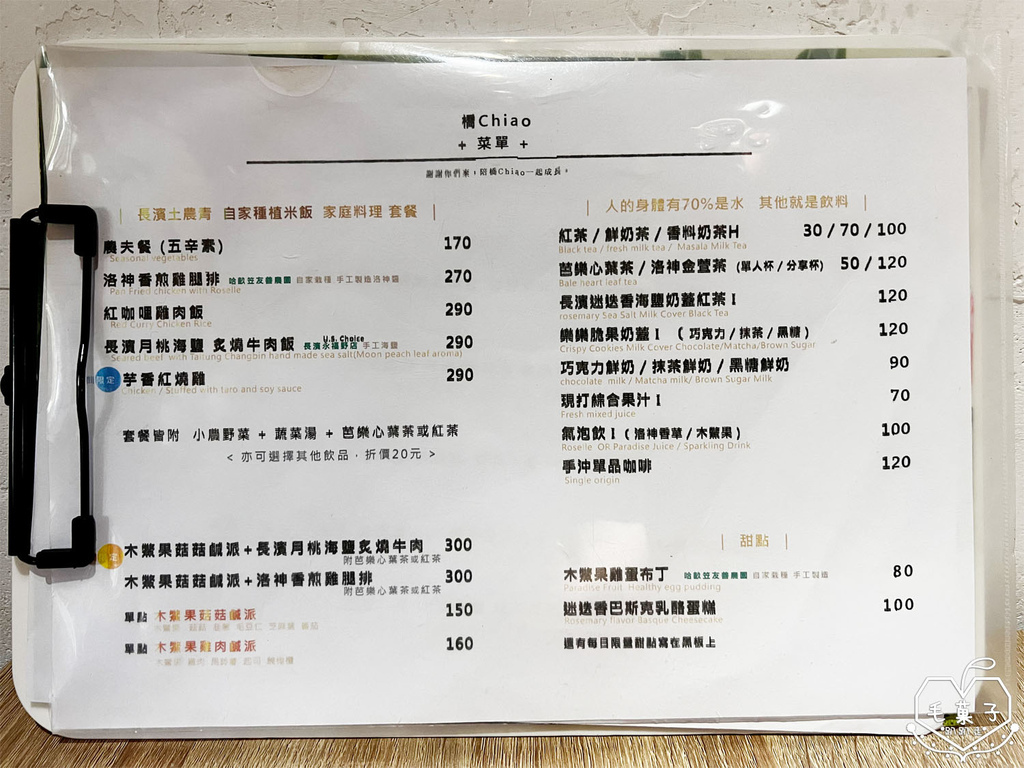 橋Chiao
+ 菜單 +
謝謝你們來，陪橋Chiao一起成長。
| 長濱土農青 自家種植米飯 家庭料理 套餐 |
農夫餐 (五辛素) 170
Seasonal vegetables
洛神香煎雞腿排 哈畝笠友善農園 自家栽種 手工製造洛神醬 270
Pan Fried chicken with Roselle
紅咖哩雞肉飯 290
Red Curry Chicken Rice
長濱月桃海鹽 炙燒牛肉飯 U.S. Choice 長濱永福野店 手工海鹽 290
Seared beef with Taitung Changbin hand made sea salt(Moon peach leaf aroma)
限定 芋香紅燒雞 290
Chicken / Stuffed with taro and soy sauce
套餐皆附 小農野菜 + 蔬菜湯 + 芭樂心葉茶或紅茶
< 亦可選擇其他飲品，折價20元 >
木鱉果菇菇鹹派+長濱月桃海鹽炙燒牛肉 300
附芭樂心葉茶或紅茶
木鱉果菇菇鹹派+洛神香煎雞腿排 300
附芭樂心葉茶或紅茶
單點 木鱉果菇菇鹹派 150
單點 木鱉果雞肉鹹派 160
| 人的身體有70%是水 其他就是飲料 |
紅茶 / 鮮奶茶 / 香料奶茶H 30 / 70 / 100
Black tea / fresh milk tea / Masala Milk Tea
芭樂心葉茶 / 洛神金萱茶 (單人杯 / 分享杯) 50 / 120
Bale heart leaf tea
長濱迷迭香海鹽奶蓋紅茶 I 120
rosemary Sea Salt Milk Cover Black Tea
樂樂脆果奶蓋 I ( 巧克力 / 抹茶 / 黑糖 ) 120
Crispy Cookies Milk Cover Chocolate/Matcha/Brown Sugar
巧克力鮮奶 / 抹茶鮮奶 / 黑糖鮮奶 90
chocolate milk / Matcha milk/ Brown Sugar Milk
現打綜合果汁 I 70
Fresh mixed juice
氣泡飲 I ( 洛神香草 / 木鱉果 ) 100
Roselle OR Paradise Juice / Sparkling Drink
手沖單品咖啡 120
Single origin
| 甜點 |
木鱉果雞蛋布丁 哈畝笠友善農園 自家栽種 手工製造 80
Paradise Fruit Healthy egg pudding
迷迭香巴斯克乳酪蛋糕 100
Rosemary flavor Basque Cheesecake
還有每日限量甜點寫在黑板上
毛菓子